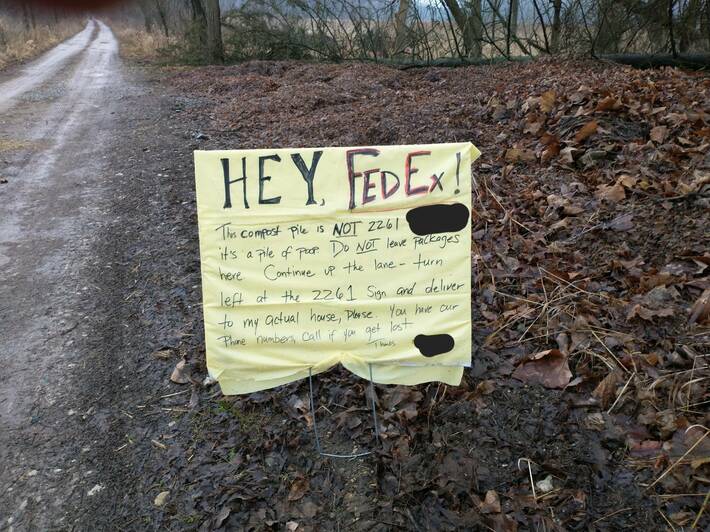 HEY, FEDEx!
This compost pile is NOT 2261
it's a pile of poop. Do NOT leave packages
here Continue up the lane - turn
left at the 2261 Sign and deliver
to my actual house, Please. You have our
Phone numbers, Call if you get lost
Thanks